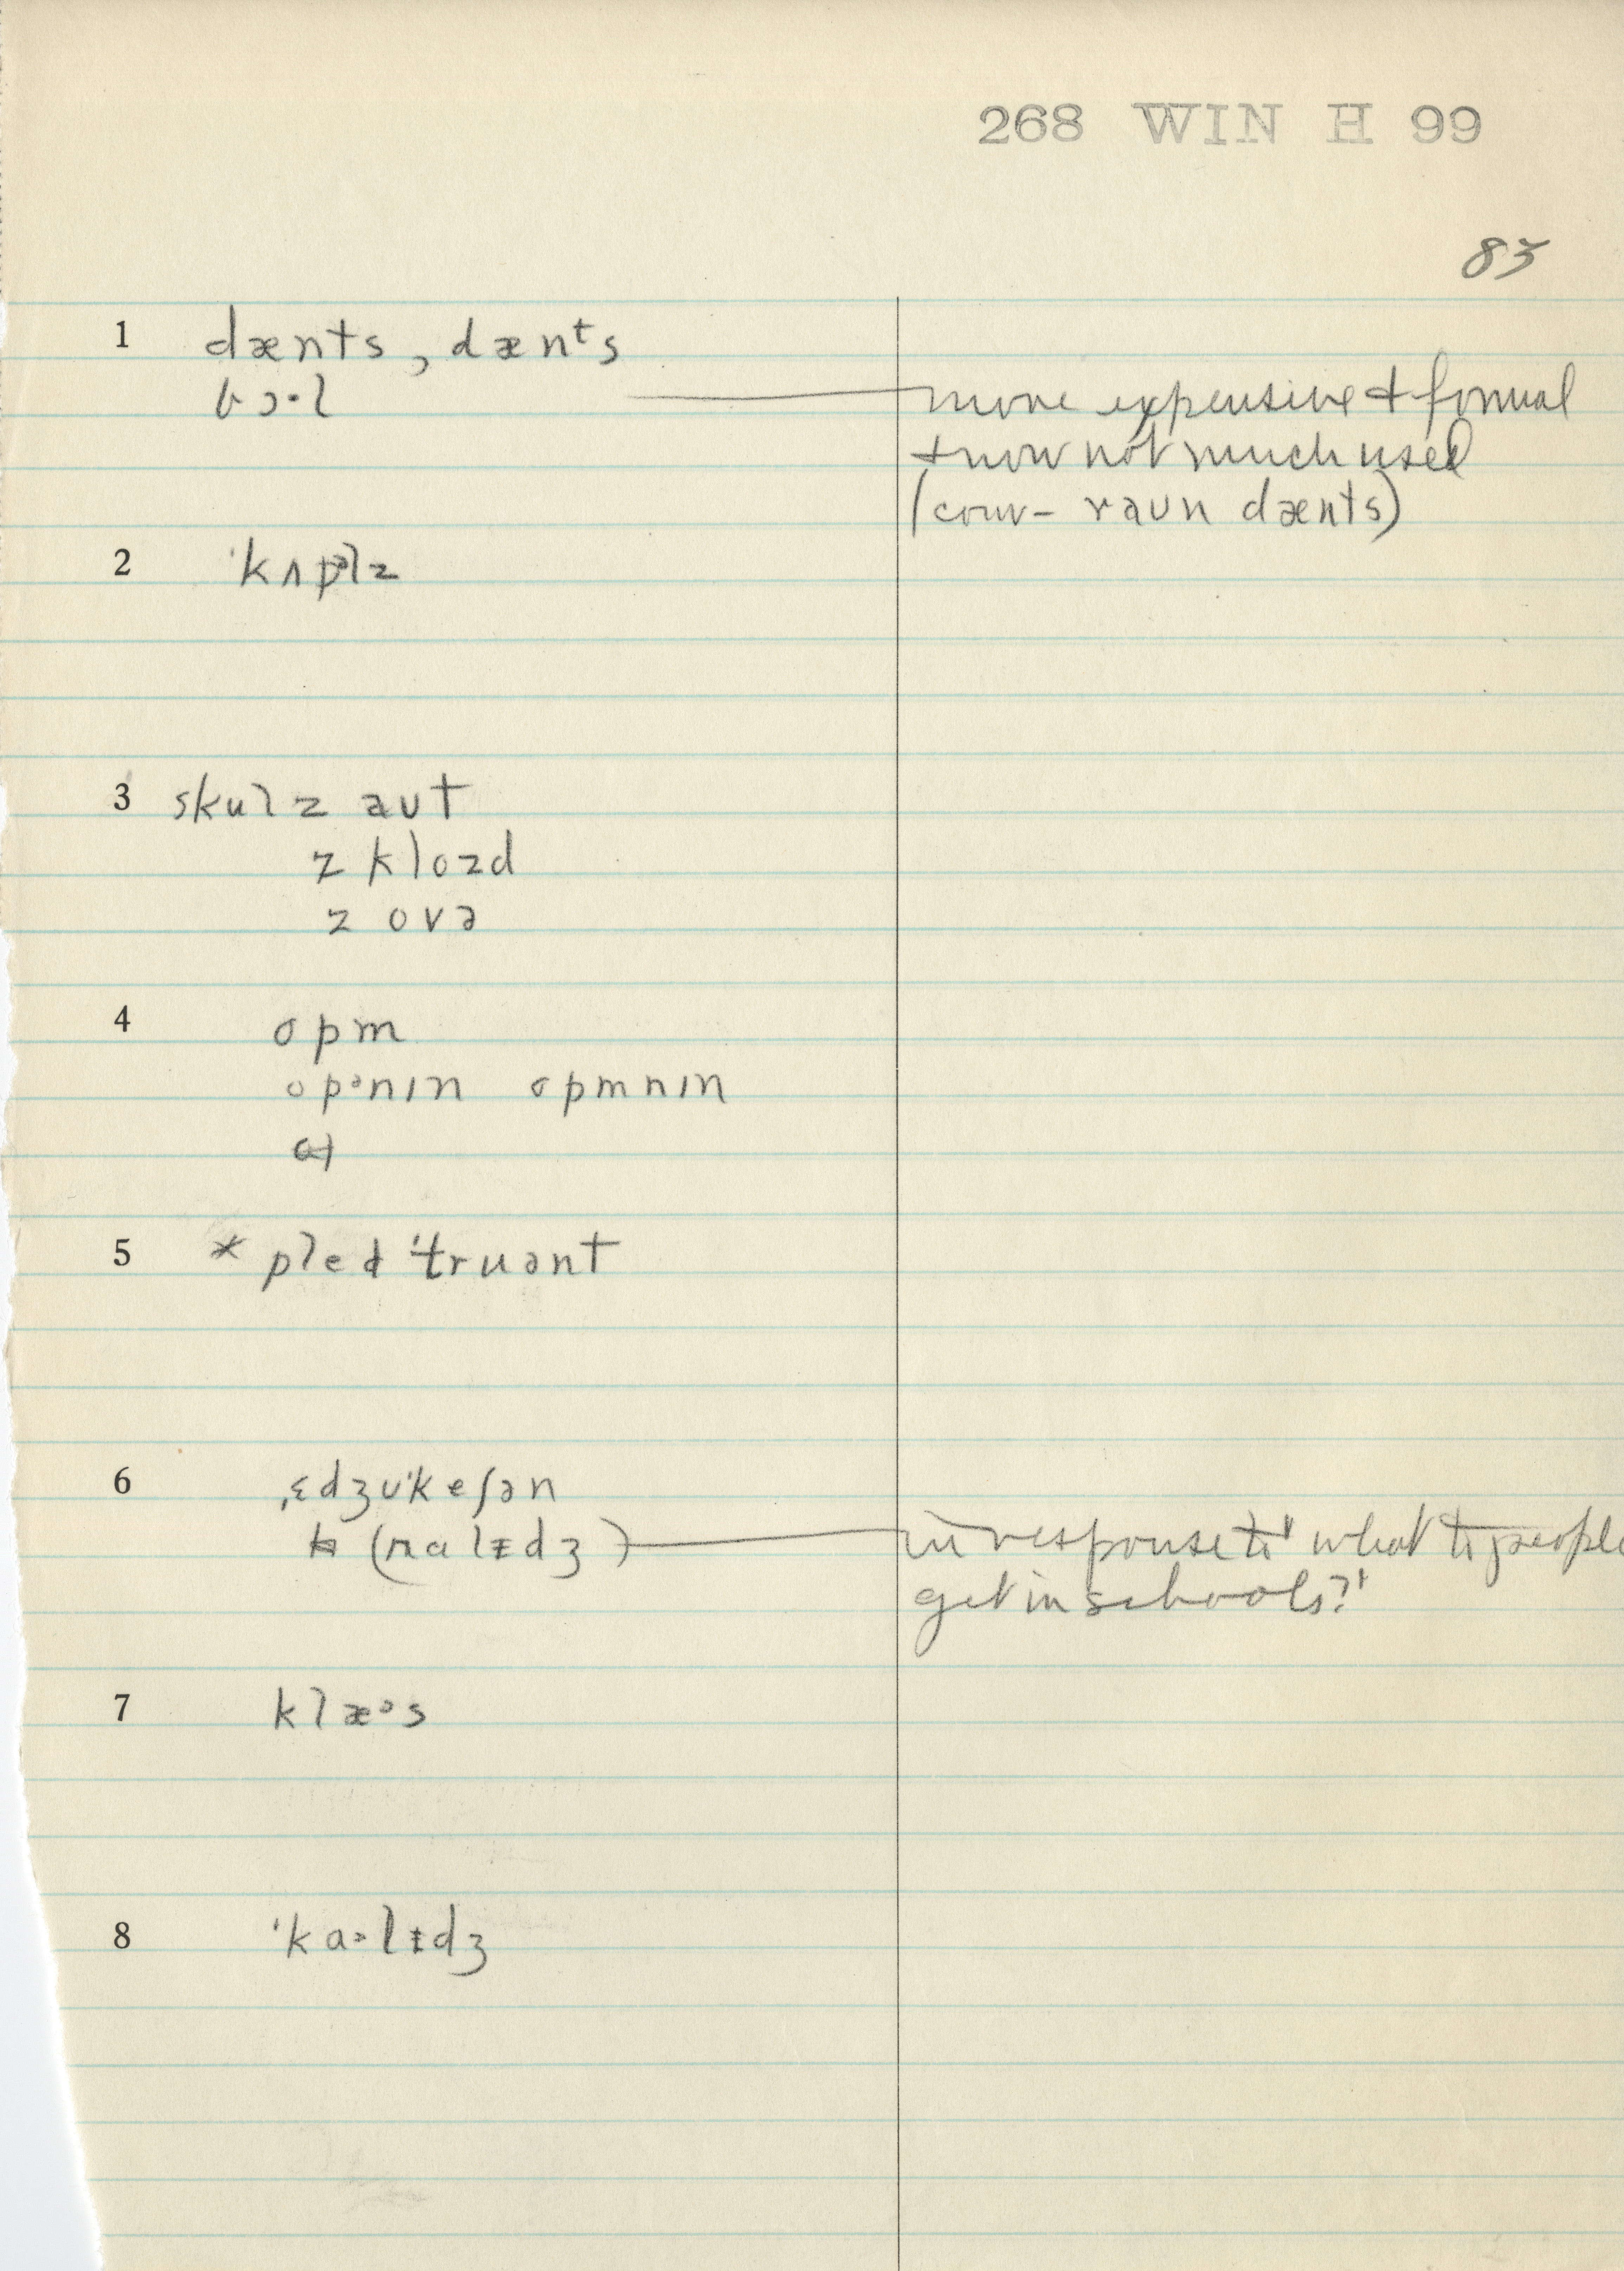 268 WIN H 99
83
1 dænts, dænᵗs
bɔ·l more expensive & formal
& now not much used
(conv– raun dænts)
2 ˈkʌpᵊlz
3 skulz aut
z klozd
z ovə
4 opm
opᵊnɪn opmnɪn
5 * pled ˈtruənt
6 ˌɛdʒʊˈkeʃən
(nalɪdʒ) in response to 'what do people
get in schools?'
7 klæᵊs
8 ˈka·lɪdʒ